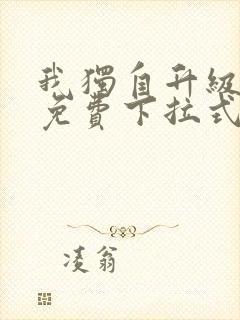 我獨自升級
免費下拉式
凌翁